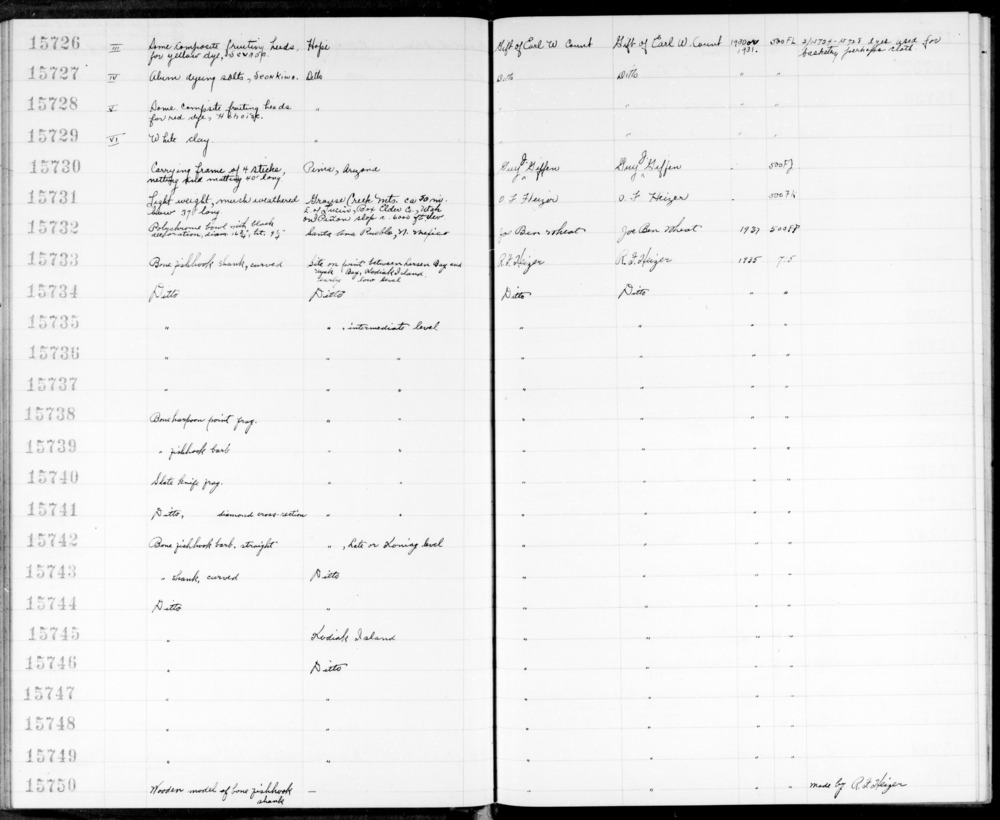 15726 III Some composite fruiting heads, Hopi Gift of Earl W. Count Gift of Earl W. Count 1930 or 500FL 2/15724-15728 dyes used for
for yellow dye, 1931. basketry, perhaps cloth.
15727 IV Alum dyeing salts, Ditto Ditto Ditto " "
15728 V Some composite fruiting heads " " " " "
for red dye,
15729 VI White clay. " " " " "
15730 Carrying frame of 4 sticks, Pima, Arizona Guy J Giffen Guy J Giffen - 500FJ
netting and matting 40" long
15731 Light weight, much weathered Grouse Creek Mts. ca 30 mi. O. F. Heizer O. F. Heizer - 500FK
37" long Box Elder Co., Utah
on Piñon slope
15732 Polychrome bowl with black Santa Ana Pueblo, N. Mexico Joe Ben Wheat Joe Ben Wheat 1937 500FP
decoration, diam.
15733 Bone fishhook shank, curved Site on point between Larsen Bay and R.F. Heizer R.F. Heizer 1935 75
Uyak Bay, Kodiak Island.
Early low level
15734 Ditto Ditto Ditto Ditto " "
15735 " " , intermediate level " " " "
15736 " " " " " " "
15737 " " " " " " "
15738 Bone harpoon point frag. " " " " " "
15739 " fishhook barb " " " " " "
15740 Slate knife frag. " " " " " "
15741 Ditto, diamond cross-section " " " " " "
15742 Bone fishhook barb, straight " , Late or Koniag level " " " "
15743 " shank, curved Ditto " " " "
15744 Ditto " " " " "
15745 " Kodiak Island " " " "
15746 " Ditto " " " "
15747 " " " " " "
15748 " " " " " "
15749 " " " " " "
15750 Wooden model of bone fishhook — " " " " made by R.F. Heizer
shank